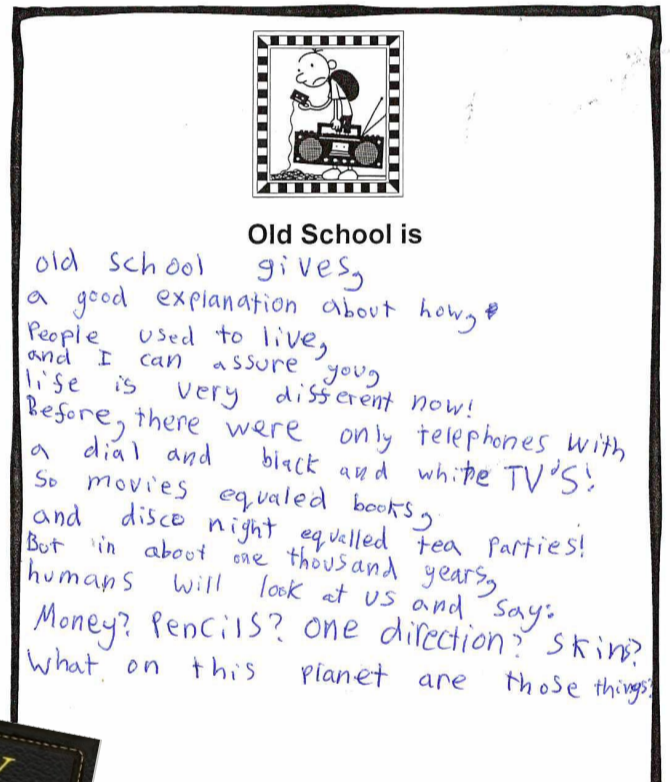 Old School is
old school gives,
a good explanation about how,
People used to live,
and I can assure you,
life is very different now!
Before, there were only telephones with
a dial and black and white TV'S!
So movies equaled books,
and disco night equalled tea parties!
But in about one thousand years,
humans will look at us and say:
Money? Pencils? One direction? Skins?
What on this planet are those things?